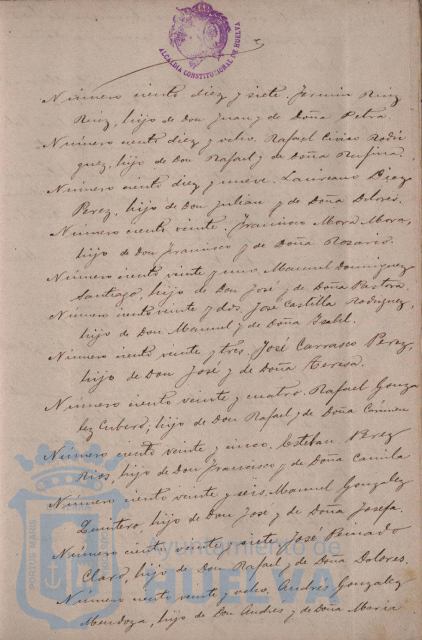 ALCALDIA CONSTITUCIONAL DE HUELVA
Número ciento diez y siete. Fermin Ruiz
Ruiz, hijo de Don Juan y de Doña Petra.
Número ciento diez y ocho. Rafael Rodri
guez, hijo de Don Rafael y de Doña Rufina.
Número ciento diez y nueve. Laureano Diaz
Perez, hijo de Don Julian y de Doña Dolores.
Número ciento veinte. Francisco Mora Mora,
hijo de Don Francisco y de Doña Rosario.
Número ciento veinte y uno. Manuel Dominguez
Santiago, hijo de Don José y de Doña Pastora.
Número ciento veinte y dos. José Castilla Rodriguez,
hijo de Don Manuel y de Doña Isabel.
Número ciento veinte y tres. José Carrasco Perez,
hijo de Don José y de Doña Teresa.
Número ciento veinte y cuatro. Rafael Gonza
lez Cubero, hijo de Don Rafael y de Doña Cármen
Número ciento veinte y cinco. Esteban Perez
Rios, hijo de Don Francisco y de Doña Camila
Número ciento veinte y seis. Manuel Gonzalez
Quintero, hijo de Don José y de Doña Josefa.
Número ciento veinte y siete. José Peinado
Claro, hijo de Don Rafael y de Doña Dolores.
Número ciento veinte y ocho. Andres Gonzalez
Mendoza, hijo de Don Andres y de Doña Maria
PORTUS MARIS
Ayuntamiento de
HUELVA